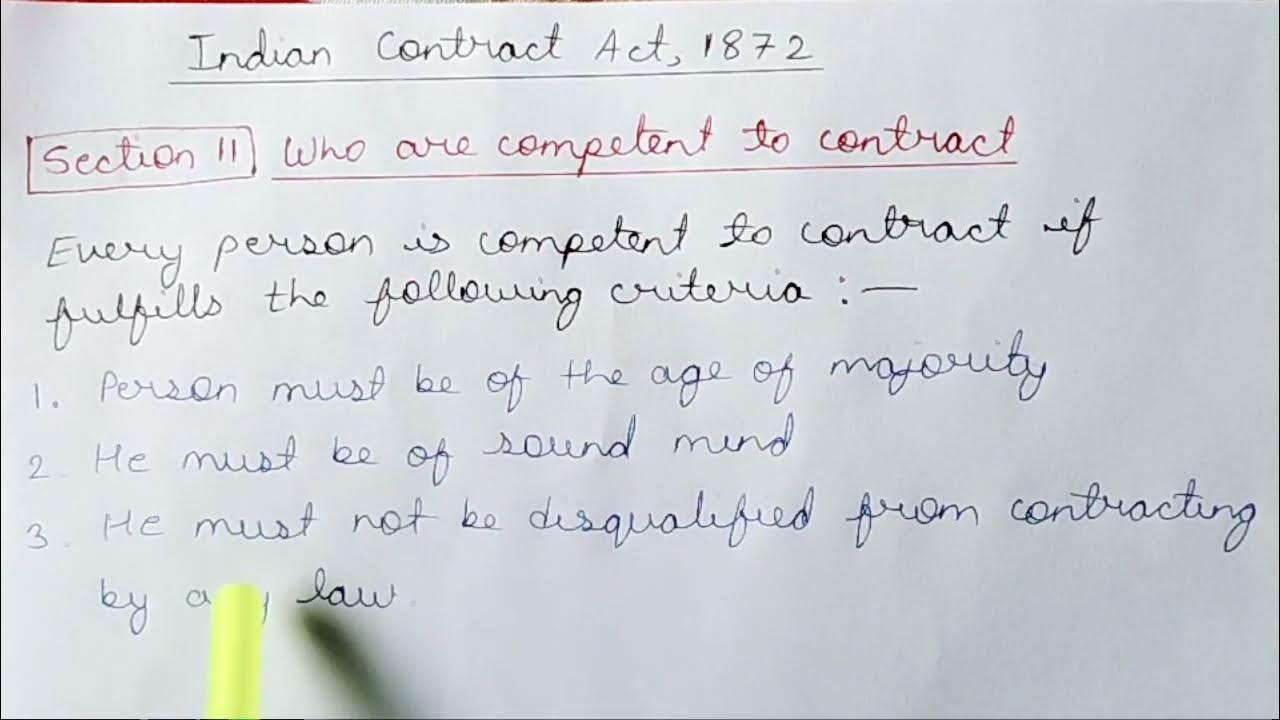 Indian Contract Act, 1872
Section 11 Who are competent to contract
Every person is competent to contract if
fulfills the following criteria :—
1. Person must be of the age of majority
2. He must be of sound mind
3. He must not be disqualified from contracting
by law.